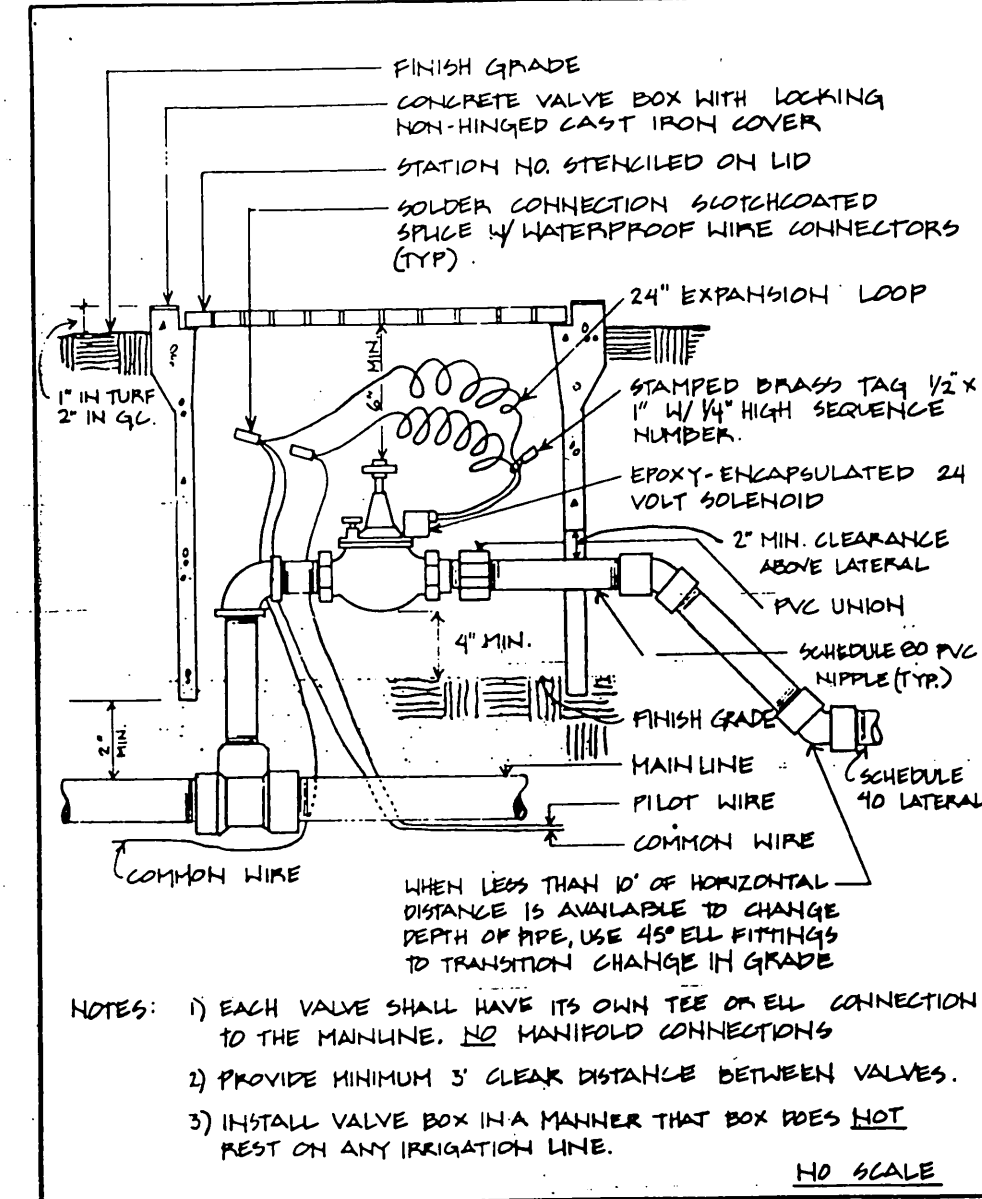 FINISH GRADE
CONCRETE VALVE BOX WITH LOCKING
NON-HINGED CAST IRON COVER
STATION NO. STENCILED ON LID
SOLDER CONNECTION SCOTCHCOATED
SPLICE W/ WATERPROOF WIRE CONNECTORS
(TYP)
24" EXPANSION LOOP
6" MIN.
1" IN TURF
2" IN GC.
STAMPED BRASS TAG 1/2" X
1" W/ 1/4" HIGH SEQUENCE
NUMBER.
EPOXY-ENCAPSULATED 24
VOLT SOLENOID
2" MIN. CLEARANCE
ABOVE LATERAL
PVC UNION
4" MIN.
SCHEDULE 80 PVC
NIPPLE (TYP.)
FINISH GRADE
2" MIN.
MAINLINE
SCHEDULE
40 LATERAL
PILOT WIRE
COMMON WIRE
COMMON WIRE
WHEN LESS THAN 10' OF HORIZONTAL
DISTANCE IS AVAILABLE TO CHANGE
DEPTH OF PIPE, USE 45° ELL FITTINGS
TO TRANSITION CHANGE IN GRADE
NOTES: 1) EACH VALVE SHALL HAVE ITS OWN TEE OR ELL CONNECTION
TO THE MAINLINE. NO MANIFOLD CONNECTIONS
2) PROVIDE MINIMUM 3' CLEAR DISTANCE BETWEEN VALVES.
3) INSTALL VALVE BOX IN A MANNER THAT BOX DOES NOT
REST ON ANY IRRIGATION LINE.
NO SCALE